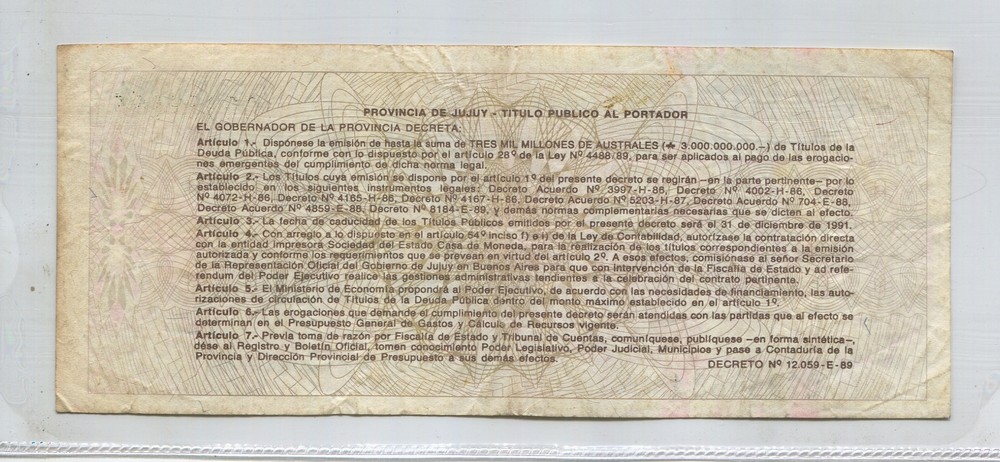 PROVINCIA DE JUJUY - TITULO PUBLICO AL PORTADOR
EL GOBERNADOR DE LA PROVINCIA DECRETA:
Artículo 1.- Dispónese la emisión de hasta la suma de TRES MIL MILLONES DE AUSTRALES (₳ 3.000.000.000.–) de Títulos de la
Deuda Pública, conforme con lo dispuesto por el artículo 28º de la Ley Nº 4488/89, para ser aplicados al pago de las erogacio-
nes emergentes del cumplimiento de dicha norma legal.
Artículo 2.- Los Títulos cuya emisión se dispone por el artículo 1º del presente decreto se regirán –en la parte pertinente– por lo
establecido en los siguientes instrumentos legales: Decreto Acuerdo Nº 3997-H-85, Decreto Nº 4002-H-86, Decreto
Nº 4072-H-86, Decreto Nº 4165-H-86, Decreto Nº 4167-H-86, Decreto Acuerdo Nº 5203-H-87, Decreto Acuerdo Nº 704-E-88,
Decreto Acuerdo Nº 4859-E-88, Decreto Nº 8184-E-89, y demás normas complementarias necesarias que se dicten al efecto.
Artículo 3.- La fecha de caducidad de los Títulos Públicos emitidos por el presente decreto será el 31 de diciembre de 1991.
Artículo 4.- Con arreglo a lo dispuesto en el artículo 54º inciso f) e i) de la Ley de Contabilidad, autorízase la contratación directa
con la entidad impresora Sociedad del Estado Casa de Moneda, para la realización de los títulos correspondientes a la emisión
autorizada y conforme los requerimientos que se prevean en virtud del artículo 2º. A esos efectos, comisiónase al señor Secretario
de la Representación Oficial del Gobierno de Jujuy en Buenos Aires para que con intervención de la Fiscalía de Estado y ad refe-
rendum del Poder Ejecutivo realice las gestiones administrativas tendientes a la celebración del contrato pertinente.
Artículo 5.- El Ministerio de Economía propondrá al Poder Ejecutivo, de acuerdo con las necesidades de financiamiento, las auto-
rizaciones de circulación de Títulos de la Deuda Pública dentro del monto máximo establecido en el artículo 1º.
Artículo 6.- Las erogaciones que demande el cumplimiento del presente decreto serán atendidas con las partidas que al efecto se
determinan en el Presupuesto General de Gastos y Cálculo de Recursos vigente.
Artículo 7.- Previa toma de razón por Fiscalía de Estado y Tribunal de Cuentas, comuníquese, publíquese –en forma sintética–,
dése al Registro y Boletín Oficial, tomen conocimiento Poder Legislativo, Poder Judicial, Municipios y pase a Contaduría de la
Provincia y Dirección Provincial de Presupuesto a sus demás efectos.
DECRETO Nº 12.059-E-89